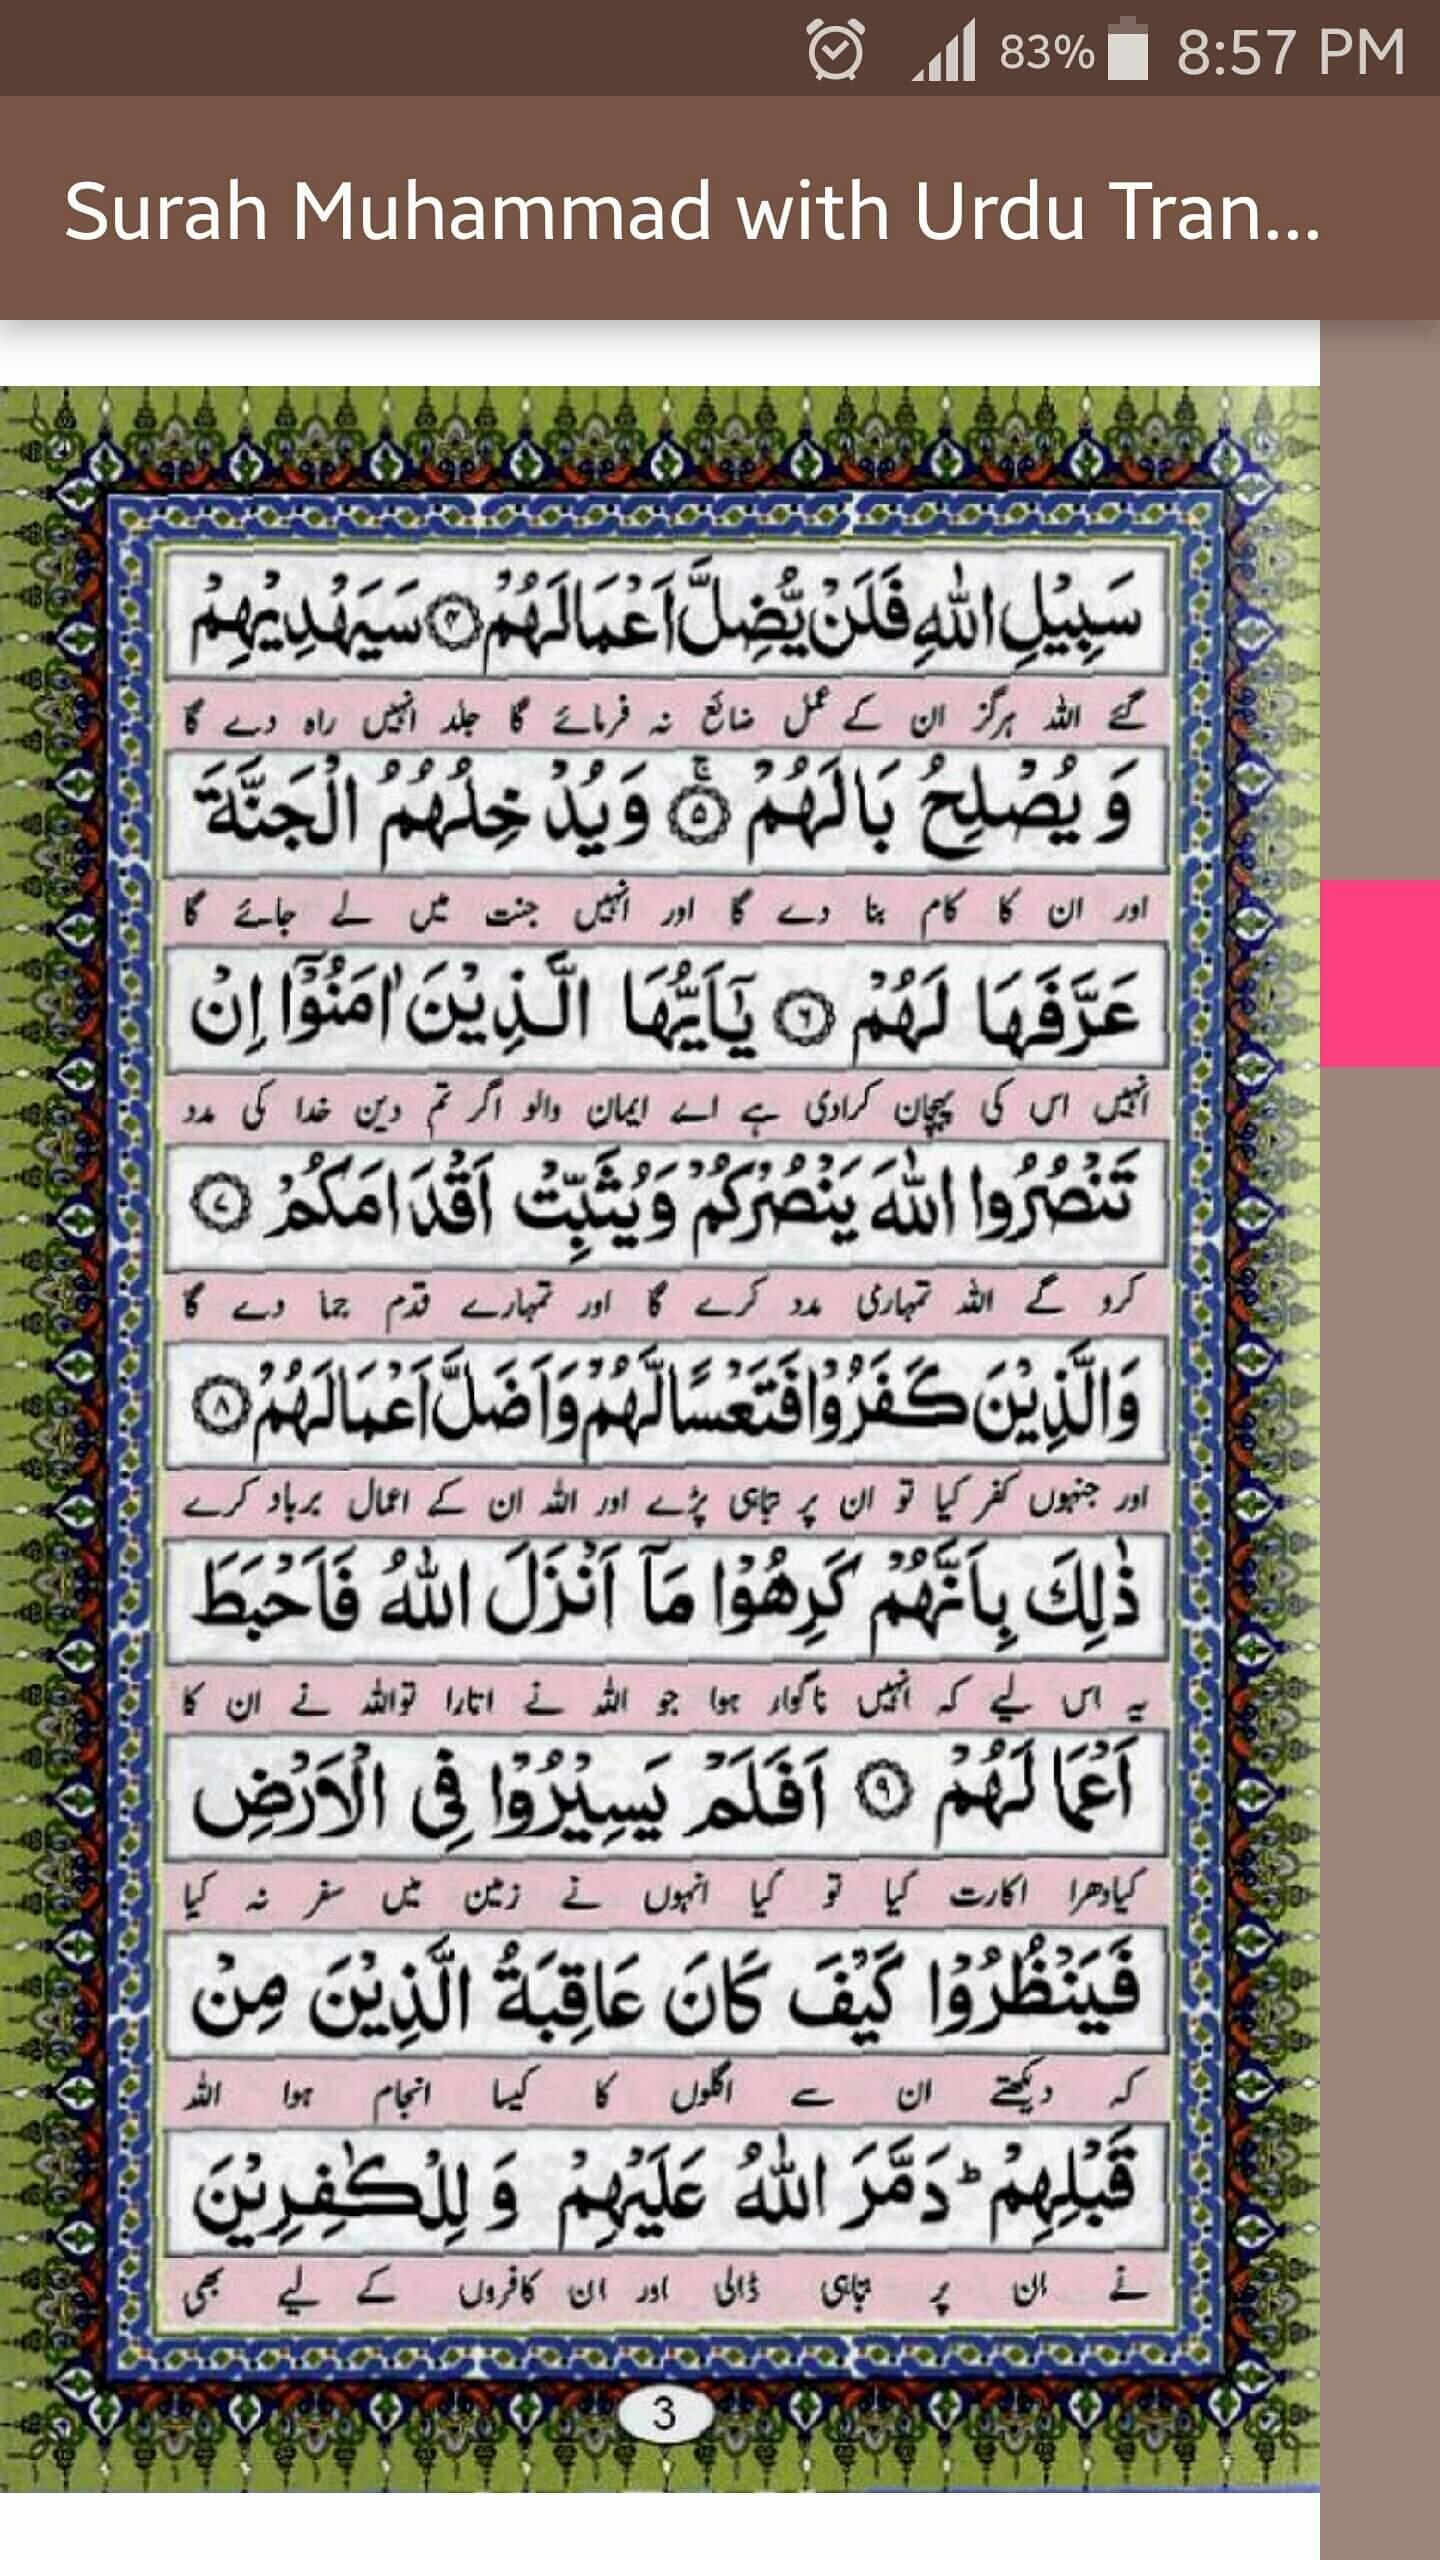 83% 8:57 PM
Surah Muhammad with Urdu Tran...
سَبِيْلِ اللّٰهِ فَلَنْ يُّضِلَّ اَعْمَالَهُمْ ۴ سَيَهْدِيْهِمْ
گئے اللہ ہرگز ان کے عمل ضائع نہ فرمائے گا جلد انہیں راہ دے گا
وَيُصْلِحُ بَالَهُمْ ۵ ۚ وَيُدْخِلُهُمُ الْجَنَّةَ
اور ان کا کام بنا دے گا اور انہیں جنت میں لے جائے گا
عَرَّفَهَا لَهُمْ ۶ يٰۤاَيُّهَا الَّذِيْنَ اٰمَنُوْۤا اِنْ
انہیں اس کی پہچان کرادی ہے اے ایمان والو اگر تم دین خدا کی مدد
تَنْصُرُوا اللّٰهَ يَنْصُرْكُمْ وَيُثَبِّتْ اَقْدَامَكُمْ ۷
کرو گے اللہ تمہاری مدد کرے گا اور تمہارے قدم جما دے گا
وَالَّذِيْنَ كَفَرُوْا فَتَعْسًا لَّهُمْ وَاَضَلَّ اَعْمَالَهُمْ ۸
اور جنہوں کفر کیا تو ان پر تباہی پڑے اور اللہ ان کے اعمال برباد کرے
ذٰلِكَ بِاَنَّهُمْ كَرِهُوْا مَاۤ اَنْزَلَ اللّٰهُ فَاَحْبَطَ
یہ اس لیے کہ انہیں ناگوار ہوا جو اللہ نے اتارا تواللہ نے ان کا
اَعْمَالَهُمْ ۹ اَفَلَمْ يَسِيْرُوْا فِى الْاَرْضِ
کیادھرا اکارت کیا تو کیا انہوں نے زمین میں سفر نہ کیا
فَيَنْظُرُوْا كَيْفَ كَانَ عَاقِبَةُ الَّذِيْنَ مِنْ
کہ دیکھتے ان سے اگلوں کا کیسا انجام ہوا اللہ
قَبْلِهِمْ ؕ دَمَّرَ اللّٰهُ عَلَيْهِمْ وَلِلْكٰفِرِيْنَ
نے ان پر تباہی ڈالی اور ان کافروں کے لیے بھی
3